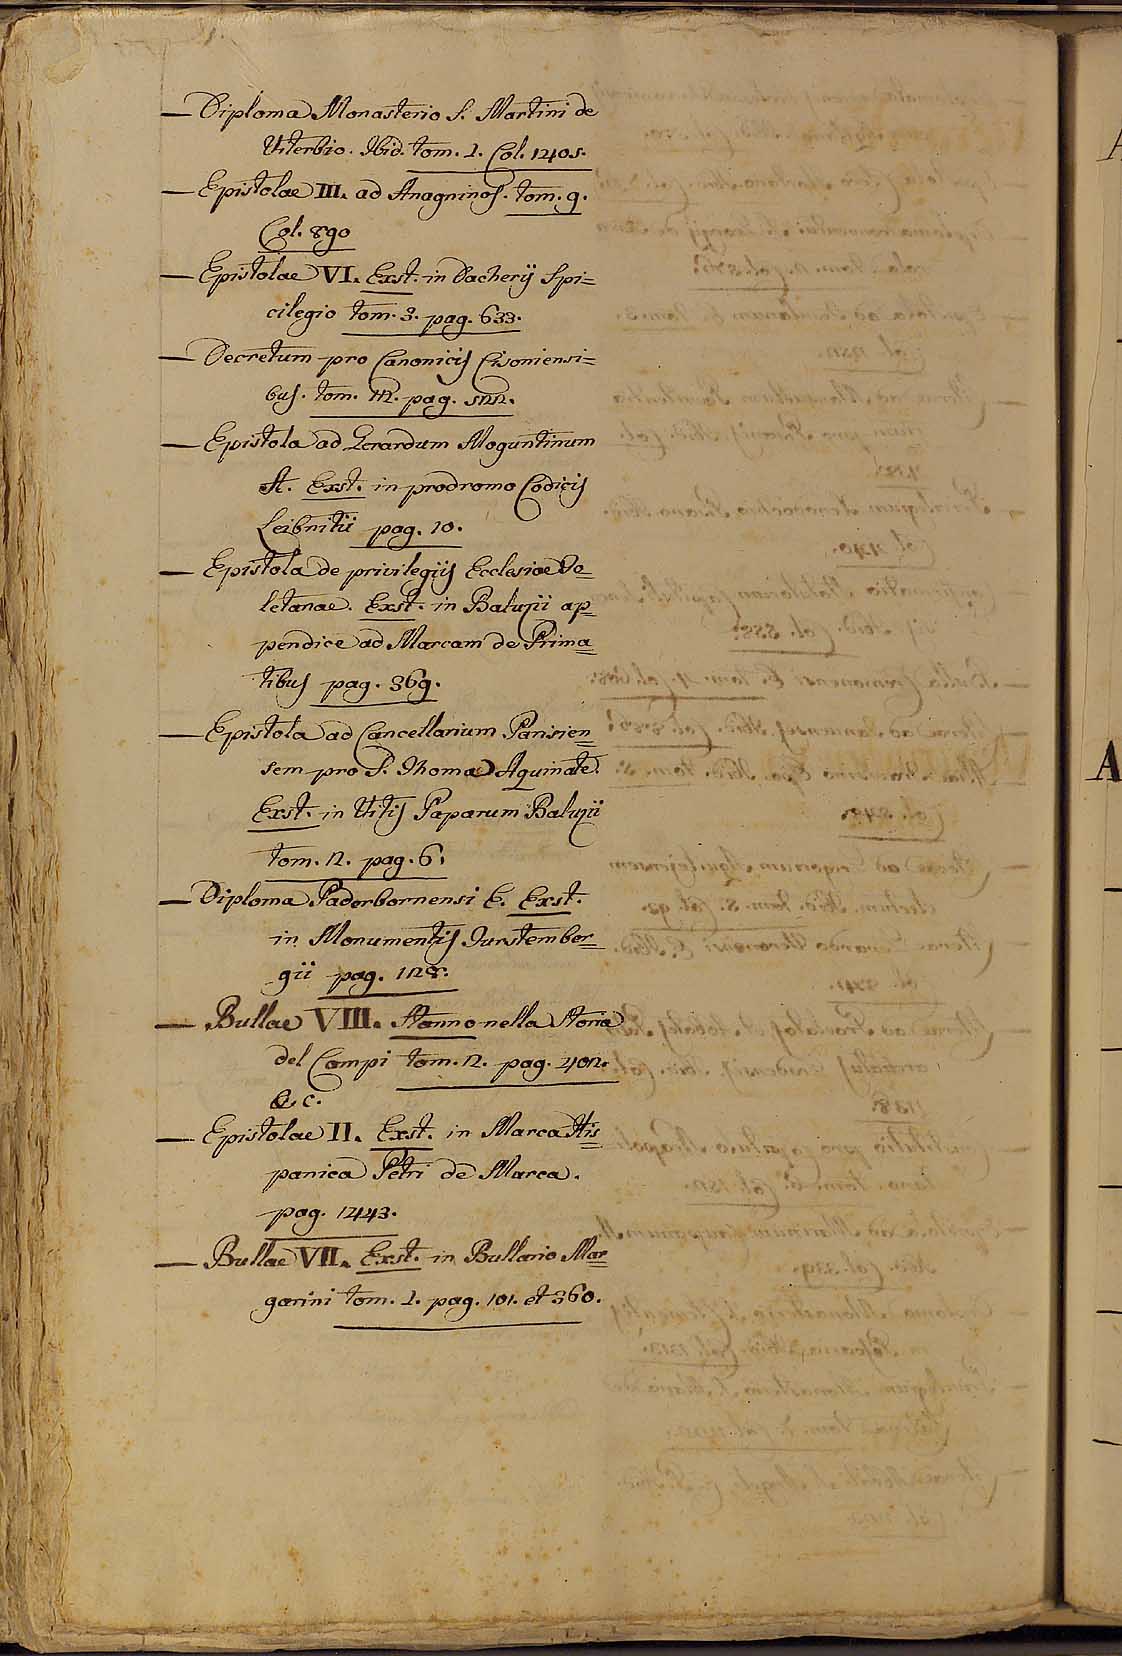 — Diploma Monasterio S. Martini de
Viterbio. Ibid. tom. 1. Col. 1405.
— Epistolae III. ad Anagninos. tom. 9.
Col. 890
— Epistolae VI. Exst. in Dacherij Spi=
cilegio tom. 3. pag. 633.
— Decretum pro Canonicis Cisoniensi=
bus. tom. 12. pag.
— Epistola ad Gerardum Moguntinum
A. Exst. in prodromo Codicis
Leibnitii pag. 10.
— Epistola de privilegiis Ecclesiae To=
letanae. Exst. in Baluzii ap=
pendice ad Marcam de Prima=
tibus pag. 369.
— Epistola ad Cancellarium Parisien=
sem pro S. Thoma Aquinate.
Exst. in Vitis Paparum Baluzii
tom. 2. pag. 6.
— Diploma Paderbornensi E. Exst.
in Monumentis Furstember=
gii pag. 128.
— Bullae VIII. Stanno nella Storia
del Campi tom. 2. pag. 402.
&c.
— Epistolae II. Exst. in Marca His=
panica Petri de Marca.
pag. 1443.
— Bullae VII. Exst. in Bullario Mar=
garini tom. 1. pag. 101. et 360.
A